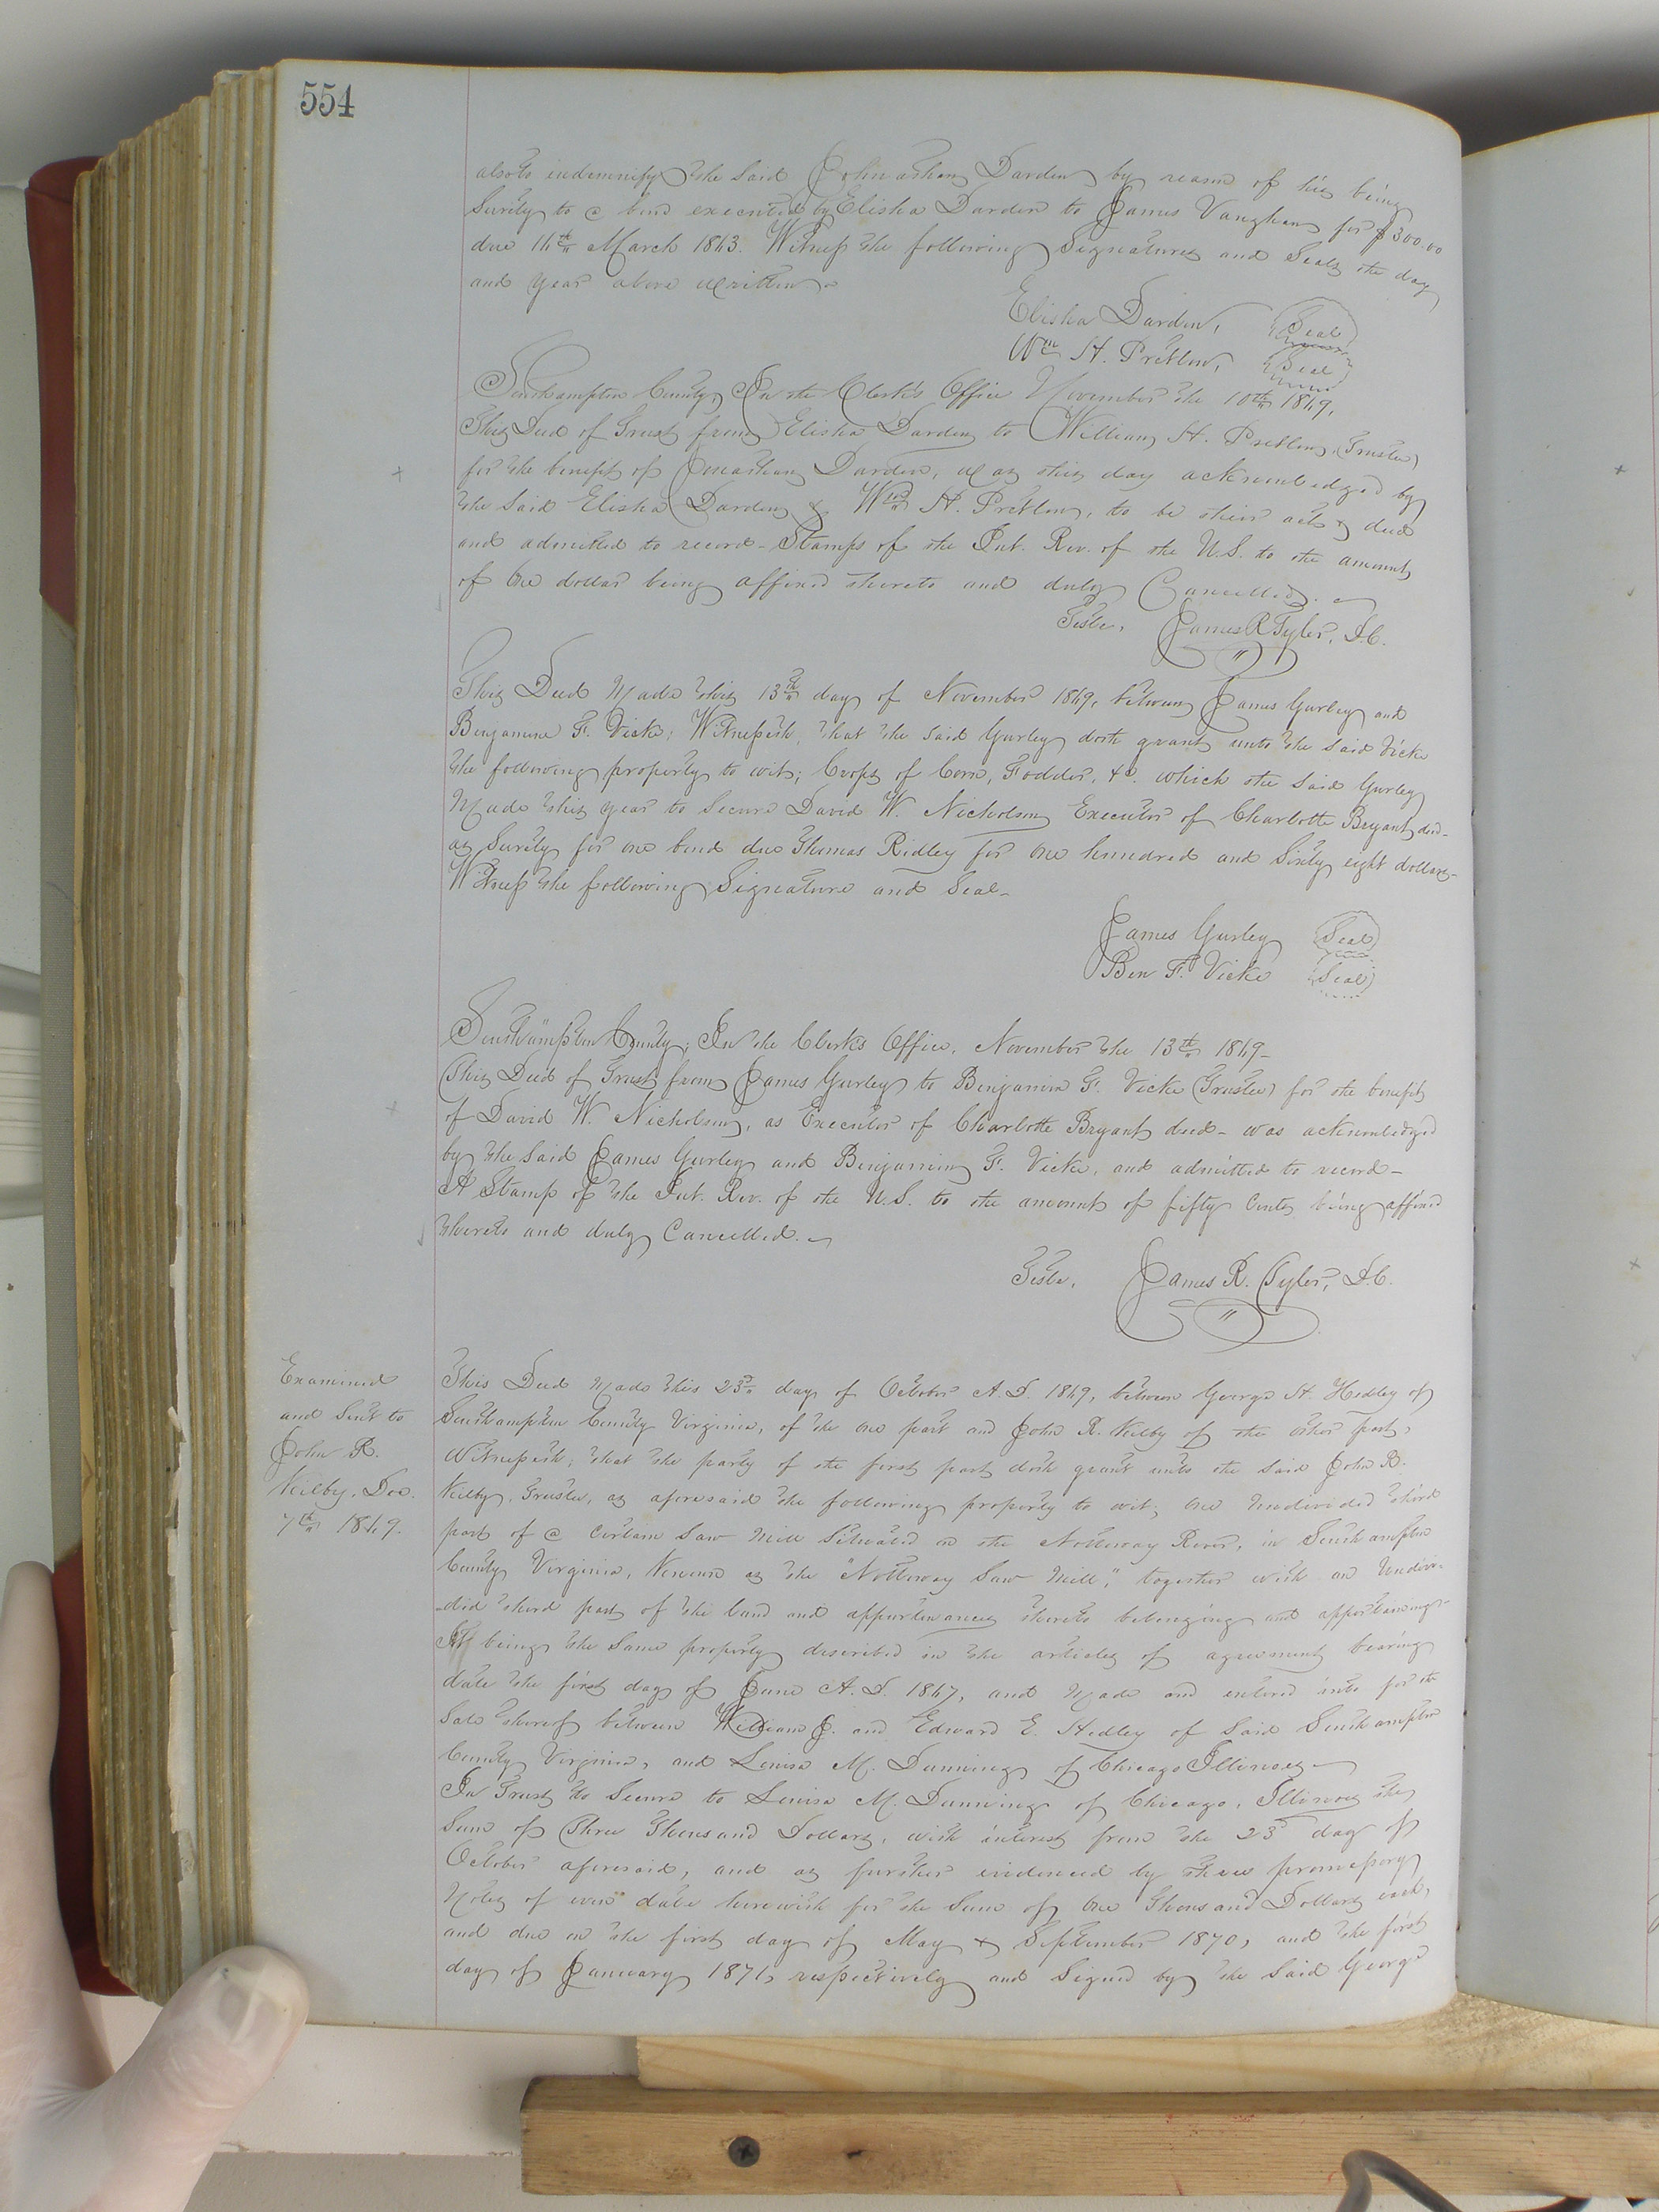 554
also to indemnify the said Johnathan Darden by reason of his being
Surity to a bond executed by Elisha Darden to James Vaughan for $300.00
due 16th March 1863. Witness the following Signatures and Seals the day
and year above written
Elisha Darden, (Seal)
Wm H. Pretlow, (Seal)
Southampton County, In the Clerk's Office November the 10th 1869,
This Deed of Trust from Elisha Darden to William H. Pretlow, (Trustee)
for the benefit of Jonathan Darden, was this day acknowledged by
the said Elisha Darden & Wm H. Pretlow, to be their acts & deed
and admitted to record - Stamps of the Int. Rev. of the U.S. to the amount
of One dollar being affixed thereto and duly Cancelled.
Teste, James R Tyler, D.C.
This Deed Made this 13th day of November 1869, between James Gurley and
Benjamine F. Vick; Witnesseth, that the said Gurley doth grant unto the said Vick
the following property to wit; Crops of Corn, Fodder, &c. which the said Gurley
Made this year to Secure David W. Nicholson Executor of Charlotte Bryant decd-
as Surity for one bond due Thomas Ridley for One hundred and Sixty eight dollars-
Witness the following Signature and Seal-
James Gurley (Seal)
Ben F. Vick (Seal)
Southampton County; In the Clerks Office, November the 13th 1869-
This Deed of Trust from James Gurley to Benjamin F. Vick (Trustee) for the benefit
of David W. Nicholson, as Executor of Charlotte Bryant decd- was acknowledged
by the said James Gurley and Benjamin F. Vick, and admitted to record-
A Stamp of the Int. Rev. of the U.S. to the amount of fifty Cents being affixed
thereto and duly Cancelled.
Teste, James R. Tyler, D.C.
Examined
and Sent to
John R.
Kilby, Dec.
7th 1869.
This Deed Made this 23rd day of October A.D. 1869, between George H. Hedley of
Southampton County Virginia, of the one part and John R. Kilby of the other part,
Witnesseth; that the party of the first part doth grant unto the said John R.
Kilby, Trustee, as aforesaid the following property to wit; One Undivided third
part of a Certain Saw Mill Situated on the Nottoway River, in Southampton
County Virginia, Known as the "Nottoway Saw Mill," together with an Undivi-
-ded third part of the land and appurtenances thereto belonging and appertaining-
All being the Same property described in the articles of agreement bearing
date the first day of June A.D. 1867, and Made and entered into for the
Sale thereof between William J. and Edward E. Hedley of Said Southampton
County Virginia, and Louisa M. Dunning of Chicago Illinois
In Trust to Secure to Louisa M. Dunning of Chicago, Illinois the
Sum of Three Thousand Dollars, with interest from the 23rd day of
October aforesaid, and as further evidenced by three promissory
Notes of even date herewith for the Sum of One Thousand Dollars each,
and due on the first day of May & September 1870, and the first
day of January 1871, respectively and Signed by the said George